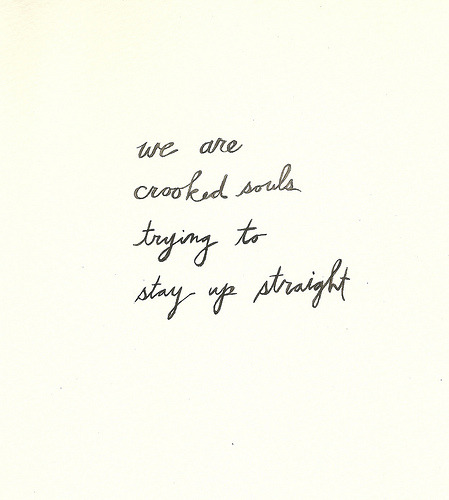 we are
crooked souls
trying to
stay up straight